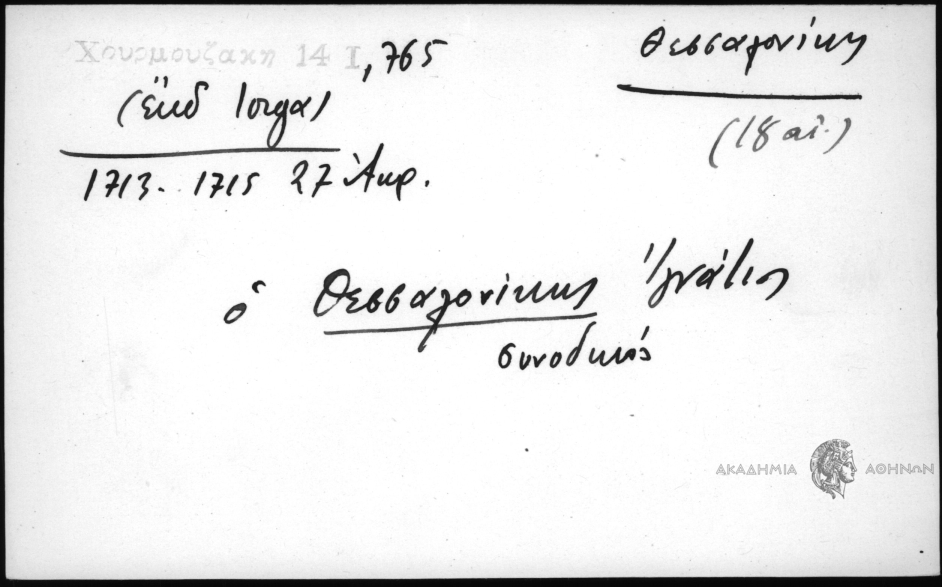 Χουρμουζακη 14 I, 765
Θεσσαλονίκης
(ἔκδ Iorga)
(18 αἰ.)
1713 - 1715 27 Ἀπρ.
ὁ Θεσσαλονίκης Ἰγνάτιος
συνοδικός
ΑΚΑΔΗΜΙΑ ΑΘΗΝΩΝ